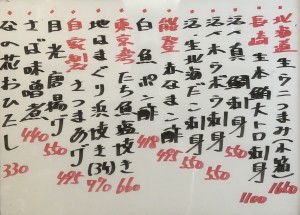 北海道 生ウニつまみ 1680
長崎 生本鮪大トロ刺身 1100
活〆真鯛刺身 550
活〆ホウボウ刺身 550
活〆北海ダコ刺身 550
能登 赤なまこ酢 495
白魚ポン酢 418
東京湾 たち魚塩焼き 660
地はまぐり浜焼き 970
自家製 さつまあげ 495
目光唐揚げ 550
さば味噌煮 440
なの花おひたし 330